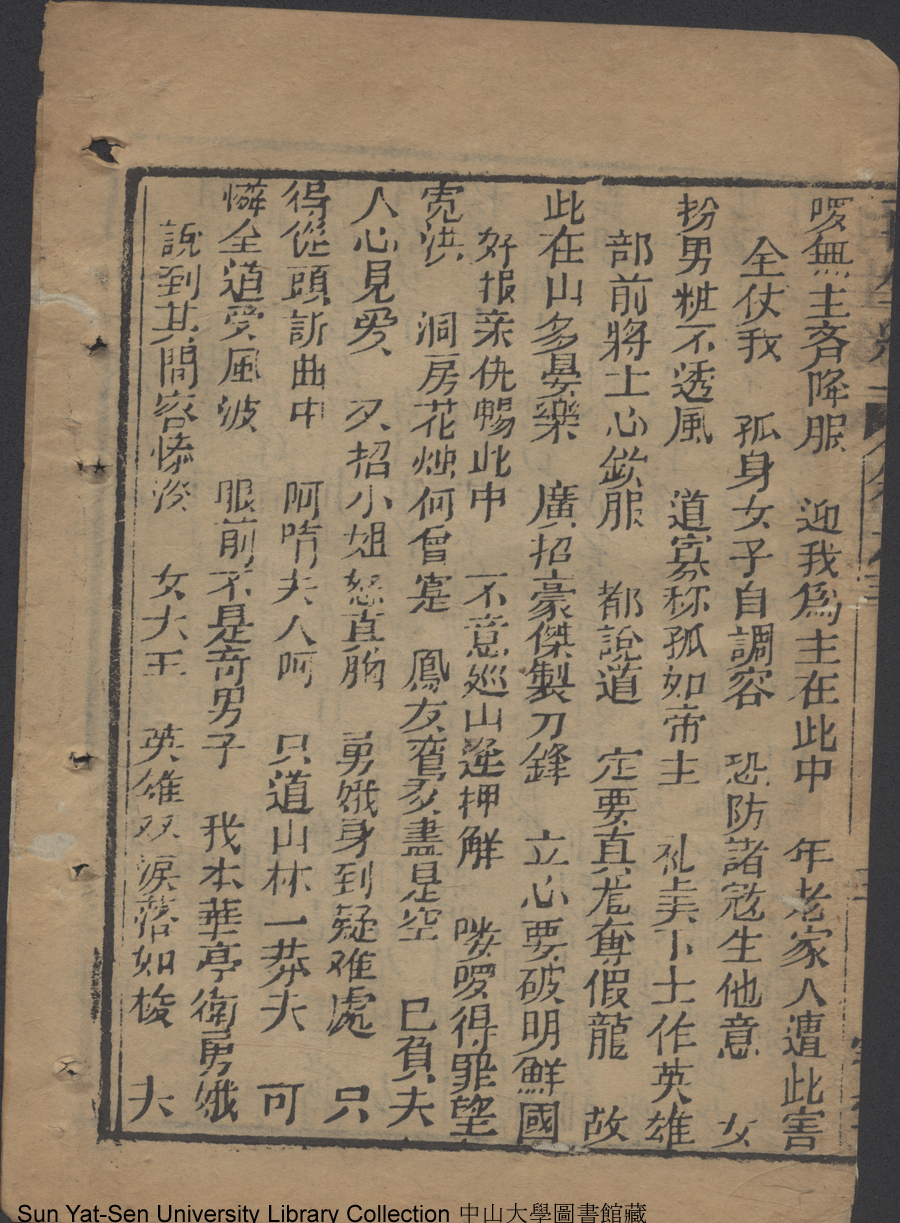 嘍無主齐降服　迎我為主在此中　年老家人遭此害
全仗我　孤身女子自調容　恐防諸冦生他意　女
扮男粧不透風　道寡称孤如帝主　礼下士作英雄
部前將士心欽服　都說道　定要真龙奪假龍　故
此在山多晏樂　廣招豪傑製刀鋒　立心要破明鮮國
好报亲仇暢此中　不意廵山逢押解　喽嘍得罪望
寛洪　洞房花烛何曾寔　鳳友鸞交盡是空　已負夫
人心見爱　又招小姐怒直胸　勇娥身到疑难處　只
得從頭訴曲中　阿唷夫人阿　只道山林一莽夫　可
憐全道受風波　眼前不是奇男子　我本華亭衛勇娥
說到其間容惨淡　女大王　英雄双淚落如梭　夫
Sun Yat-Sen University Library Collection 中山大學圖書館藏